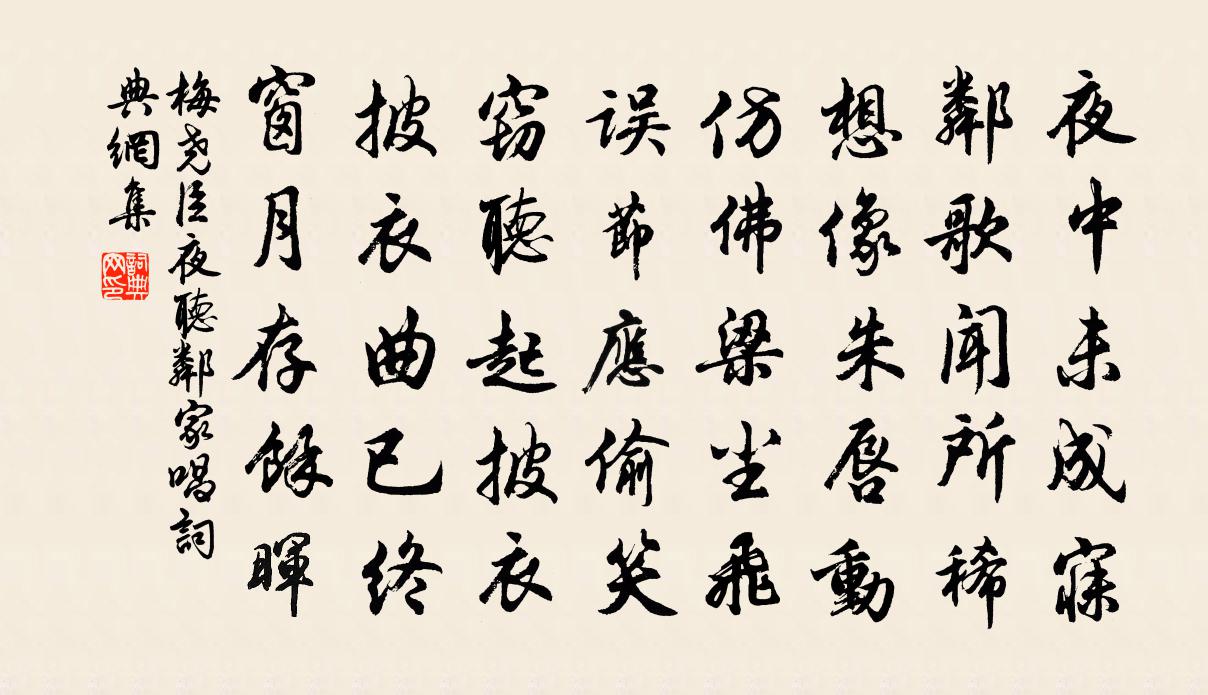 夜中未成寐
鄰歌聞所稀
想像朱唇動
仿佛梁尘飛
误節應偷笑
窃聽起披衣
披衣曲已终
窗月存餘暉
梅尧臣夜聽鄰家唱詞
典網集
詞典网印